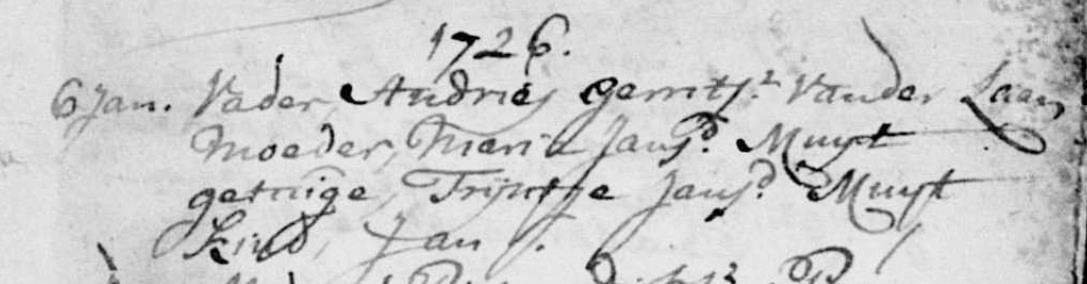 1726.
6 Jan. Vader, Andries gerritsz. Vander Laan
Moeder, Maria Jansd. Muyt
getuige, Trijntje Jansd. Muyt
Kind, Jan.